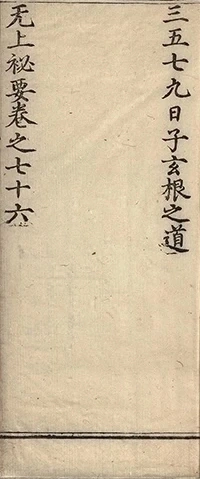 三五七九日子玄根之道
旡上祕要卷之七十六